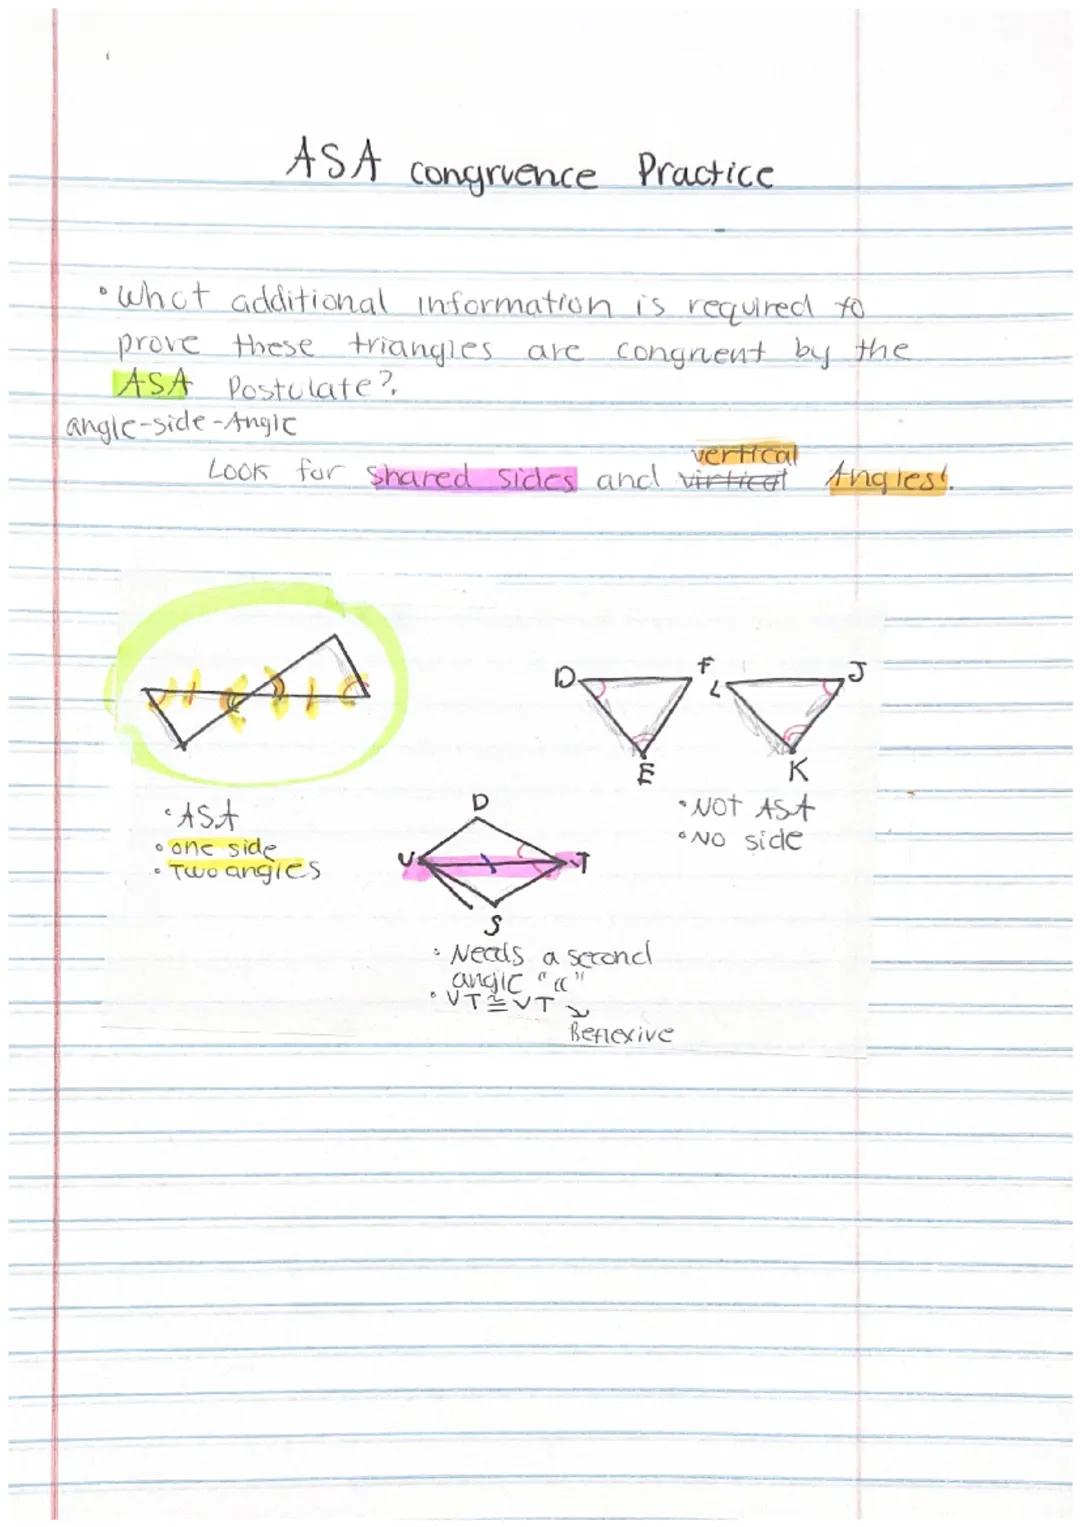 ASA congruence Practice
• What additional information is required to
prove these triangles are congruent by the
ASA Postulate?
angle-side-Angle
vertical
Look for shared sides and virtical Angles!
D F L J
E K
• ASA
• one side
• Two angles
• NOT ASA
• NO side
D
V T
S
• Needs a second
angle "α"
• VT ≅ VT ↘
Reflexive